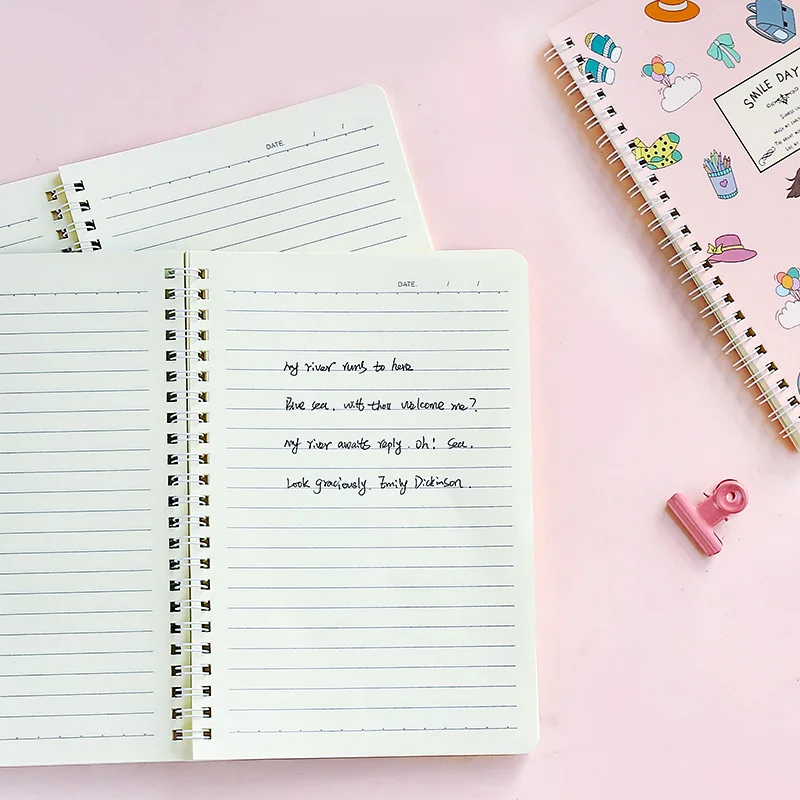 DATE. / /
SMILE DAY
DATE. / /
My river runs to here
Blue sea. with thou welcome me?
My river awaits reply. Oh! Sea.
Look graciously. Emily Dickinson.